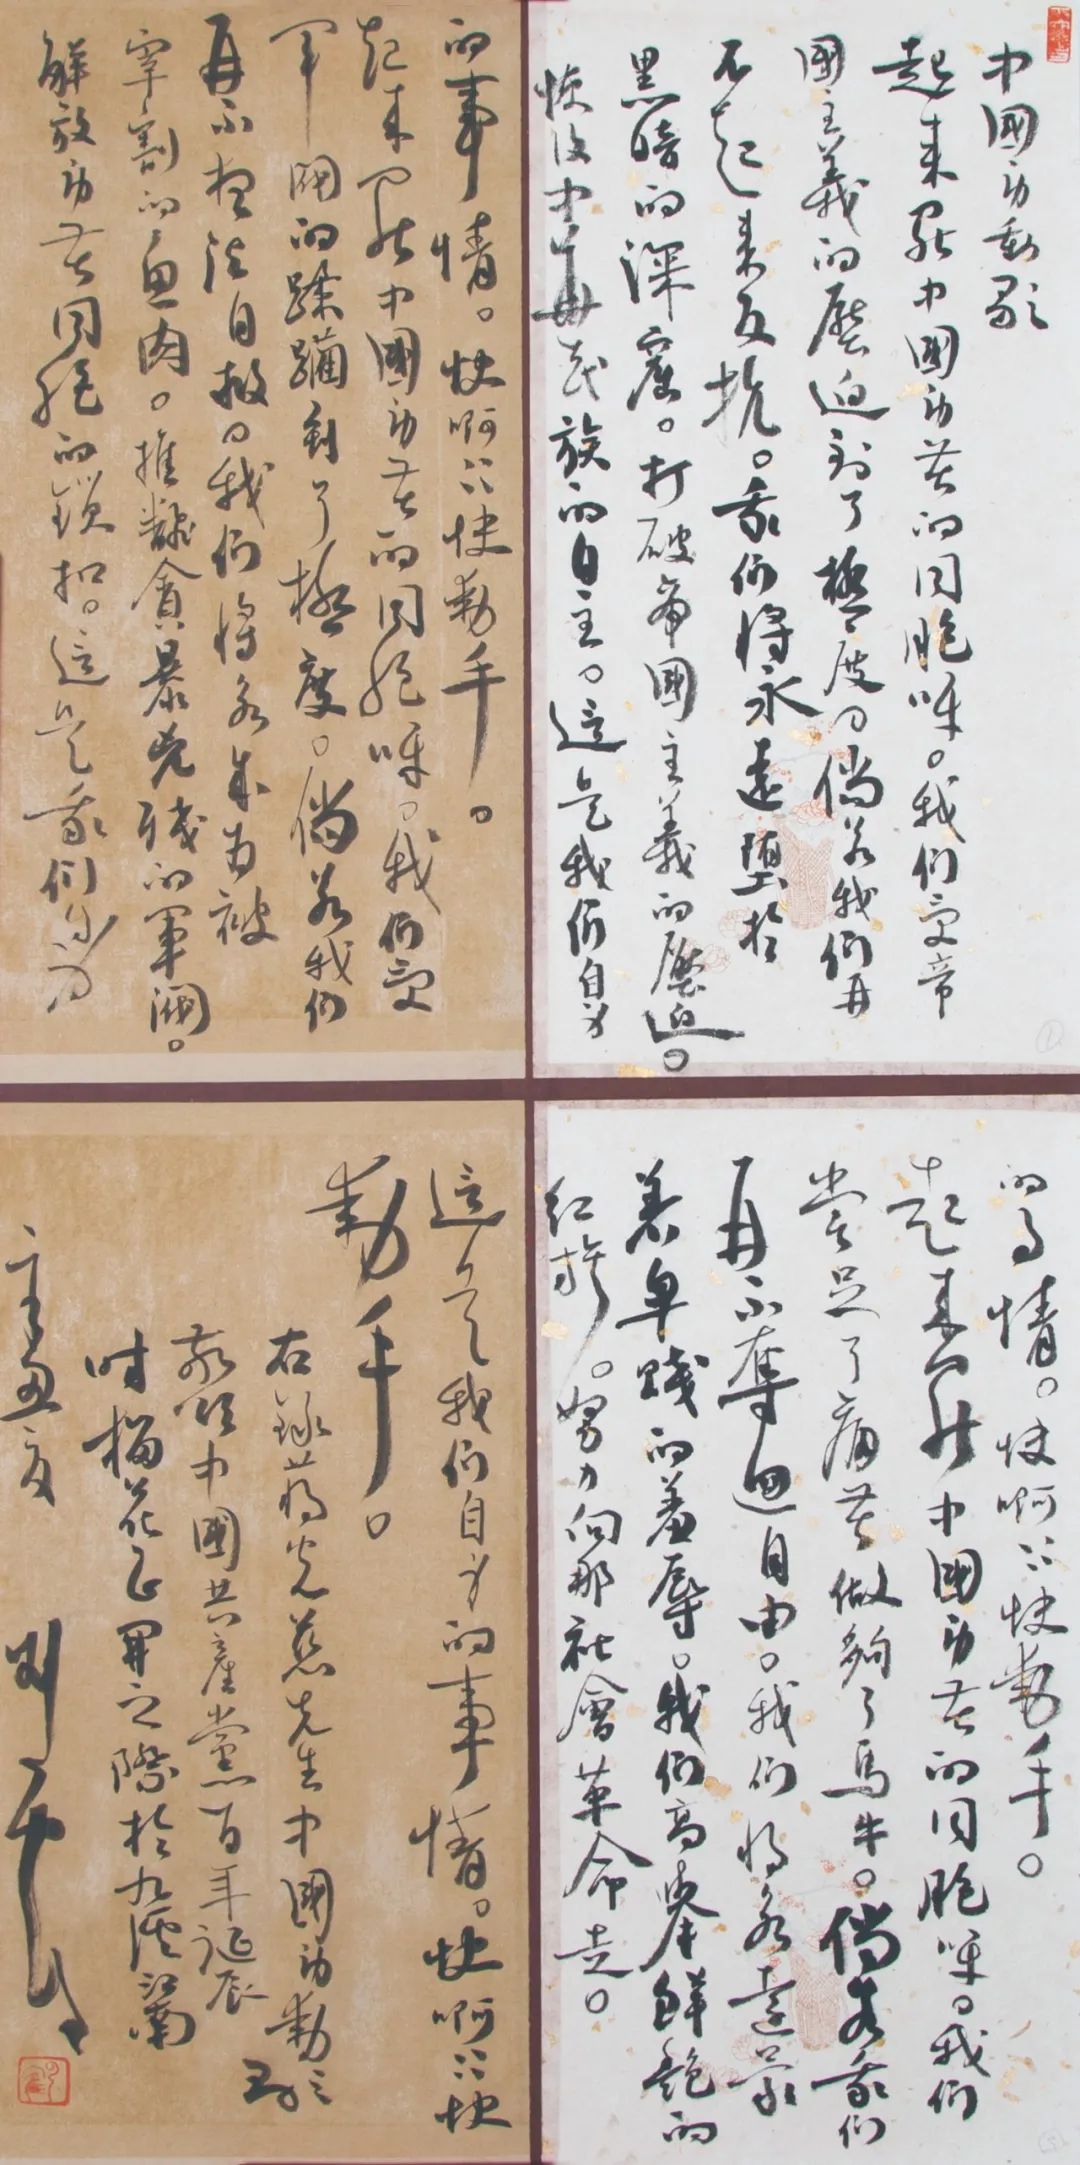 中國勞動歌
起來罷中國勞苦的同胞呀。我们受帝
國主義的壓迫到了極度。倘若我们再
不起來反抗。我们將永遠墮於
黑暗的深窟。打破帝國主義的壓迫。
恢復中華民族的自主。這是我们自身
的事情。快啊〻快動手。
起来罷中國勞苦的同胞呀。我们受
軍閥的蹂躪到了極度。倘若我们
再不想法自救。我们將永成为被
宰割的魚肉。推翻貪暴兇殘的軍閥。
解放勞苦同胞的鎖扣。這是我们
的事情。快啊〻快動手。
起來罷中國勞苦的同胞呀。我们
嘗足了痛苦做夠了馬牛。倘若我们
再不奪迴自由。我们將永遠蒙
着卑賤的羞辱。我们高舉鮮艷的
紅旗。努力向那社會革命走。
這是我们自身的事情。快啊〻快
動手。
右錄蔣光慈先生中國勞動之歌
敬頌中國共產黨百年诞辰
时榴花正開之際於
辛丑夏